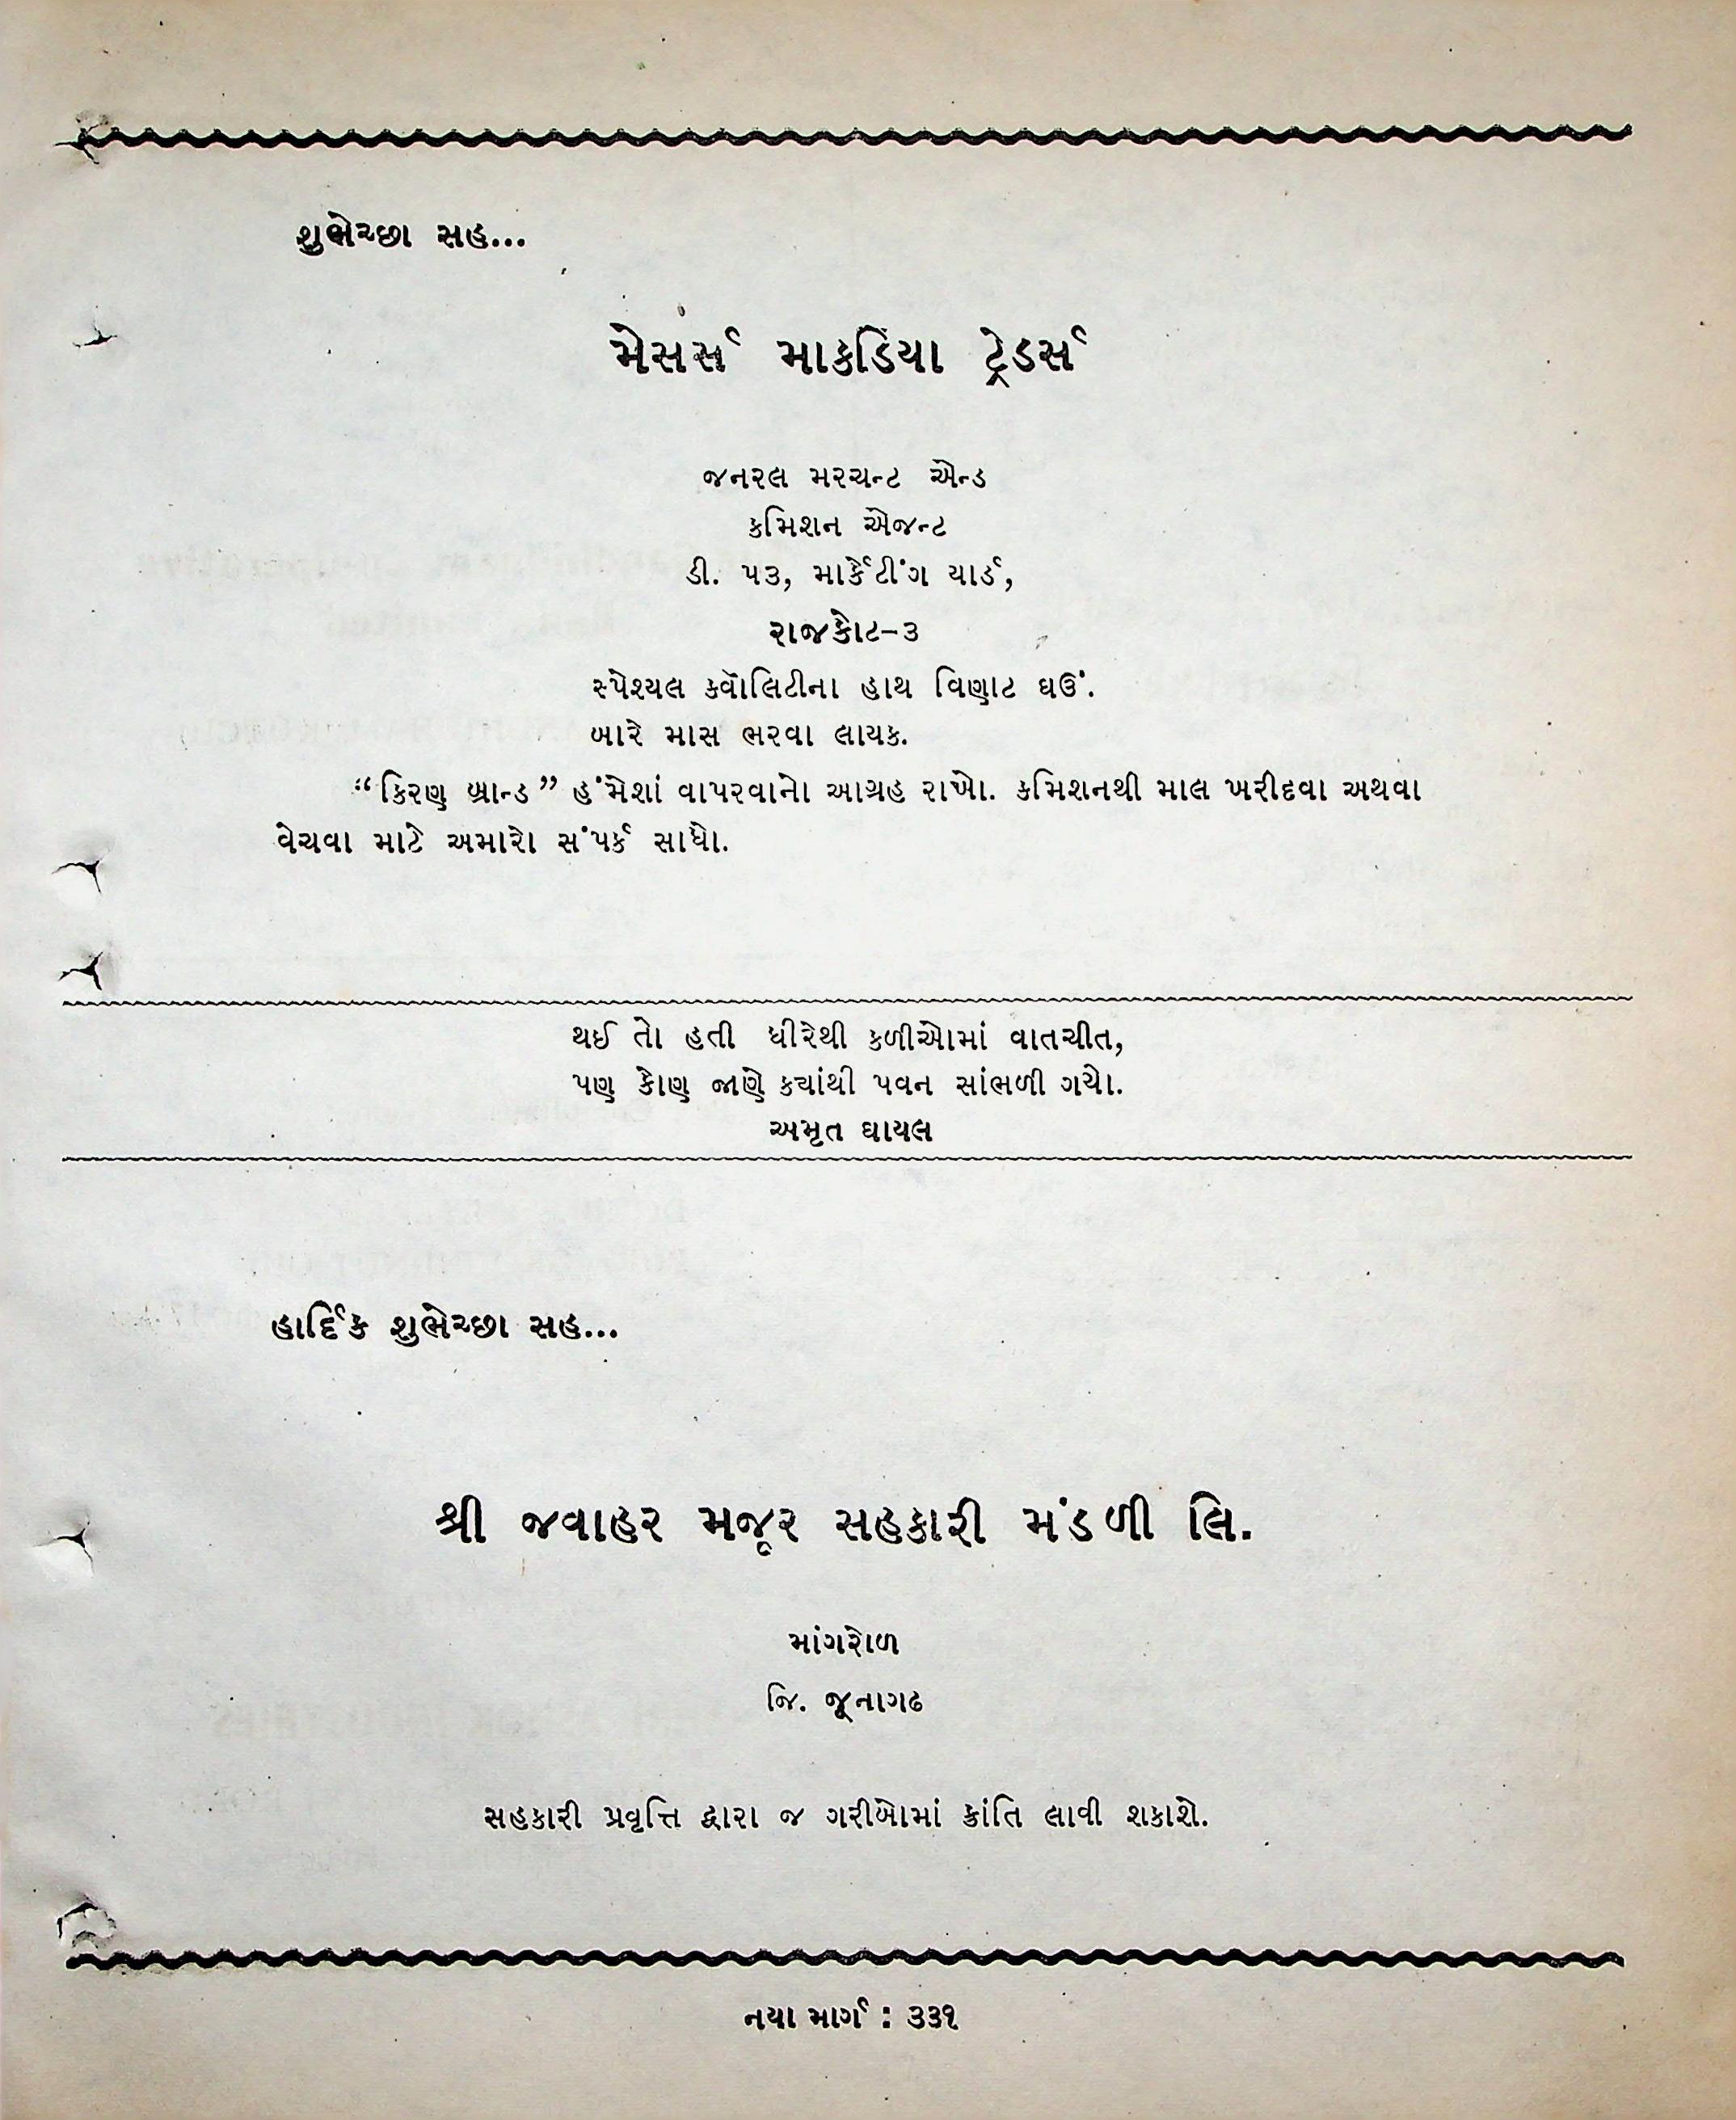 શુભેચ્છા સહ...
મેસર્સ માકડિયા ટ્રેડર્સ
જનરલ મરચન્ટ એન્ડ
કમિશન એજન્ટ
ડી. ૫૩, માર્કેટીંગ યાર્ડ,
રાજકોટ-૩
સ્પેશ્યલ ક્વૉલિટીના હાથ વિણાટ ઘઉં.
બારે માસ ભરવા લાયક.
“કિરણ બ્રાન્ડ” હંમેશાં વાપરવાનો આગ્રહ રાખો. કમિશનથી માલ ખરીદવા અથવા
વેચવા માટે અમારો સંપર્ક સાધો.
થઈ તો હતી ધીરેથી કળીઓમાં વાતચીત,
પણ કોણ જાણે ક્યાંથી પવન સાંભળી ગયો.
અમૃત ઘાયલ
હાર્દિક શુભેચ્છા સહ...
શ્રી જવાહર મજૂર સહકારી મંડળી લિ.
માંગરોળ
જિ. જૂનાગઢ
સહકારી પ્રવૃત્તિ દ્વારા જ ગરીબોમાં ક્રાંતિ લાવી શકાશે.
નયા માર્ગ : ૩૩૧